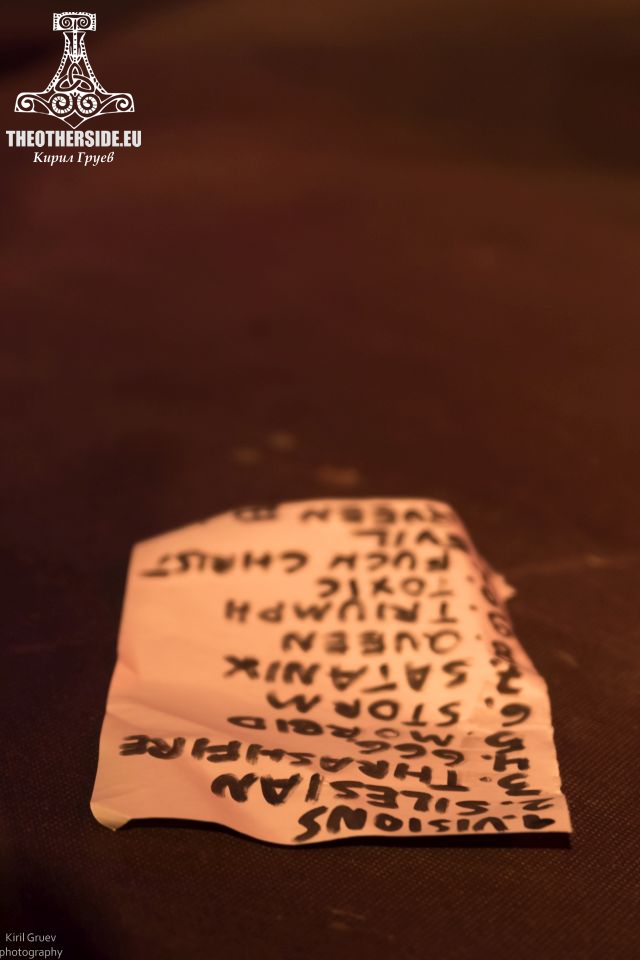 THEOTHERSIDE.EU
Кирил Груев
1. VISIONS
2. SILESIAN
3. THRASHFIRE
MORBID
STORM
SATANIK
QUEEN
TRIUMPH
TOXIC
FUCK CHRIST
EVIL
Kiril Gruev
photography